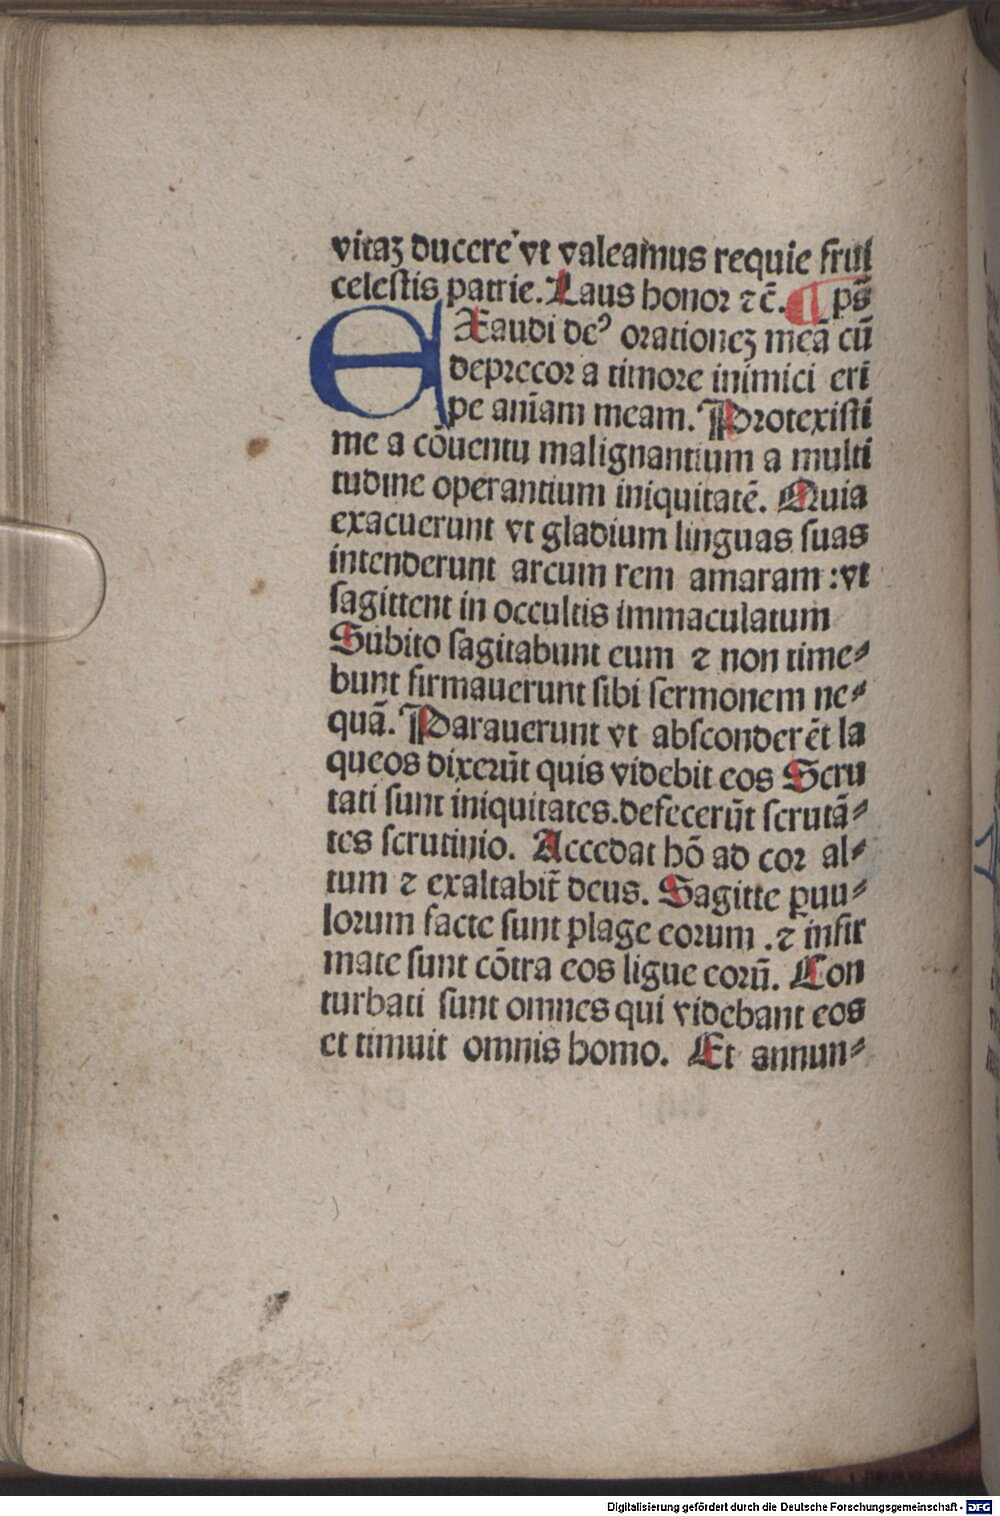 vitaꝫ ducere vt valeamus requie frui
celestis patrie. Laus honoꝛ ⁊ c̄. ¶ ps̄
EXaudi deꝰ oꝛationeꝫ meā cū
depꝛecoꝛ a timoꝛe inimici eri
pe ani̅am meam. Pꝛotexisti
me a cōuentu malignantium a multi
tudine operantium iniquitatē. Quia
exacuerunt vt gladium linguas suas
intenderunt arcum rem amaram : vt
sagittent in occultis immaculatum
Subito sagitabunt eum ⁊ non time⸗
bunt firmauerunt sibi sermonem ne⸗
quā. Parauerunt vt absconderēt la
queos dixerūt quis videbit eos Scru
tati sunt iniquitates. defecerūt scrutā⸗
tes scrutinio. Accedat hō ad coꝛ al⸗
tum ⁊ exaltabit̄ deus. Sagitte ꝑuu⸗
loꝛum facte sunt plage eoꝛum . ⁊ infir
mate sunt cōtra eos ligue eoꝛū. Con
turbati sunt omnes qui videbant eos
et timuit omnis homo. Et annun⸗
Digitalisierung gefördert durch die Deutsche Forschungsgemeinschaft - DFG